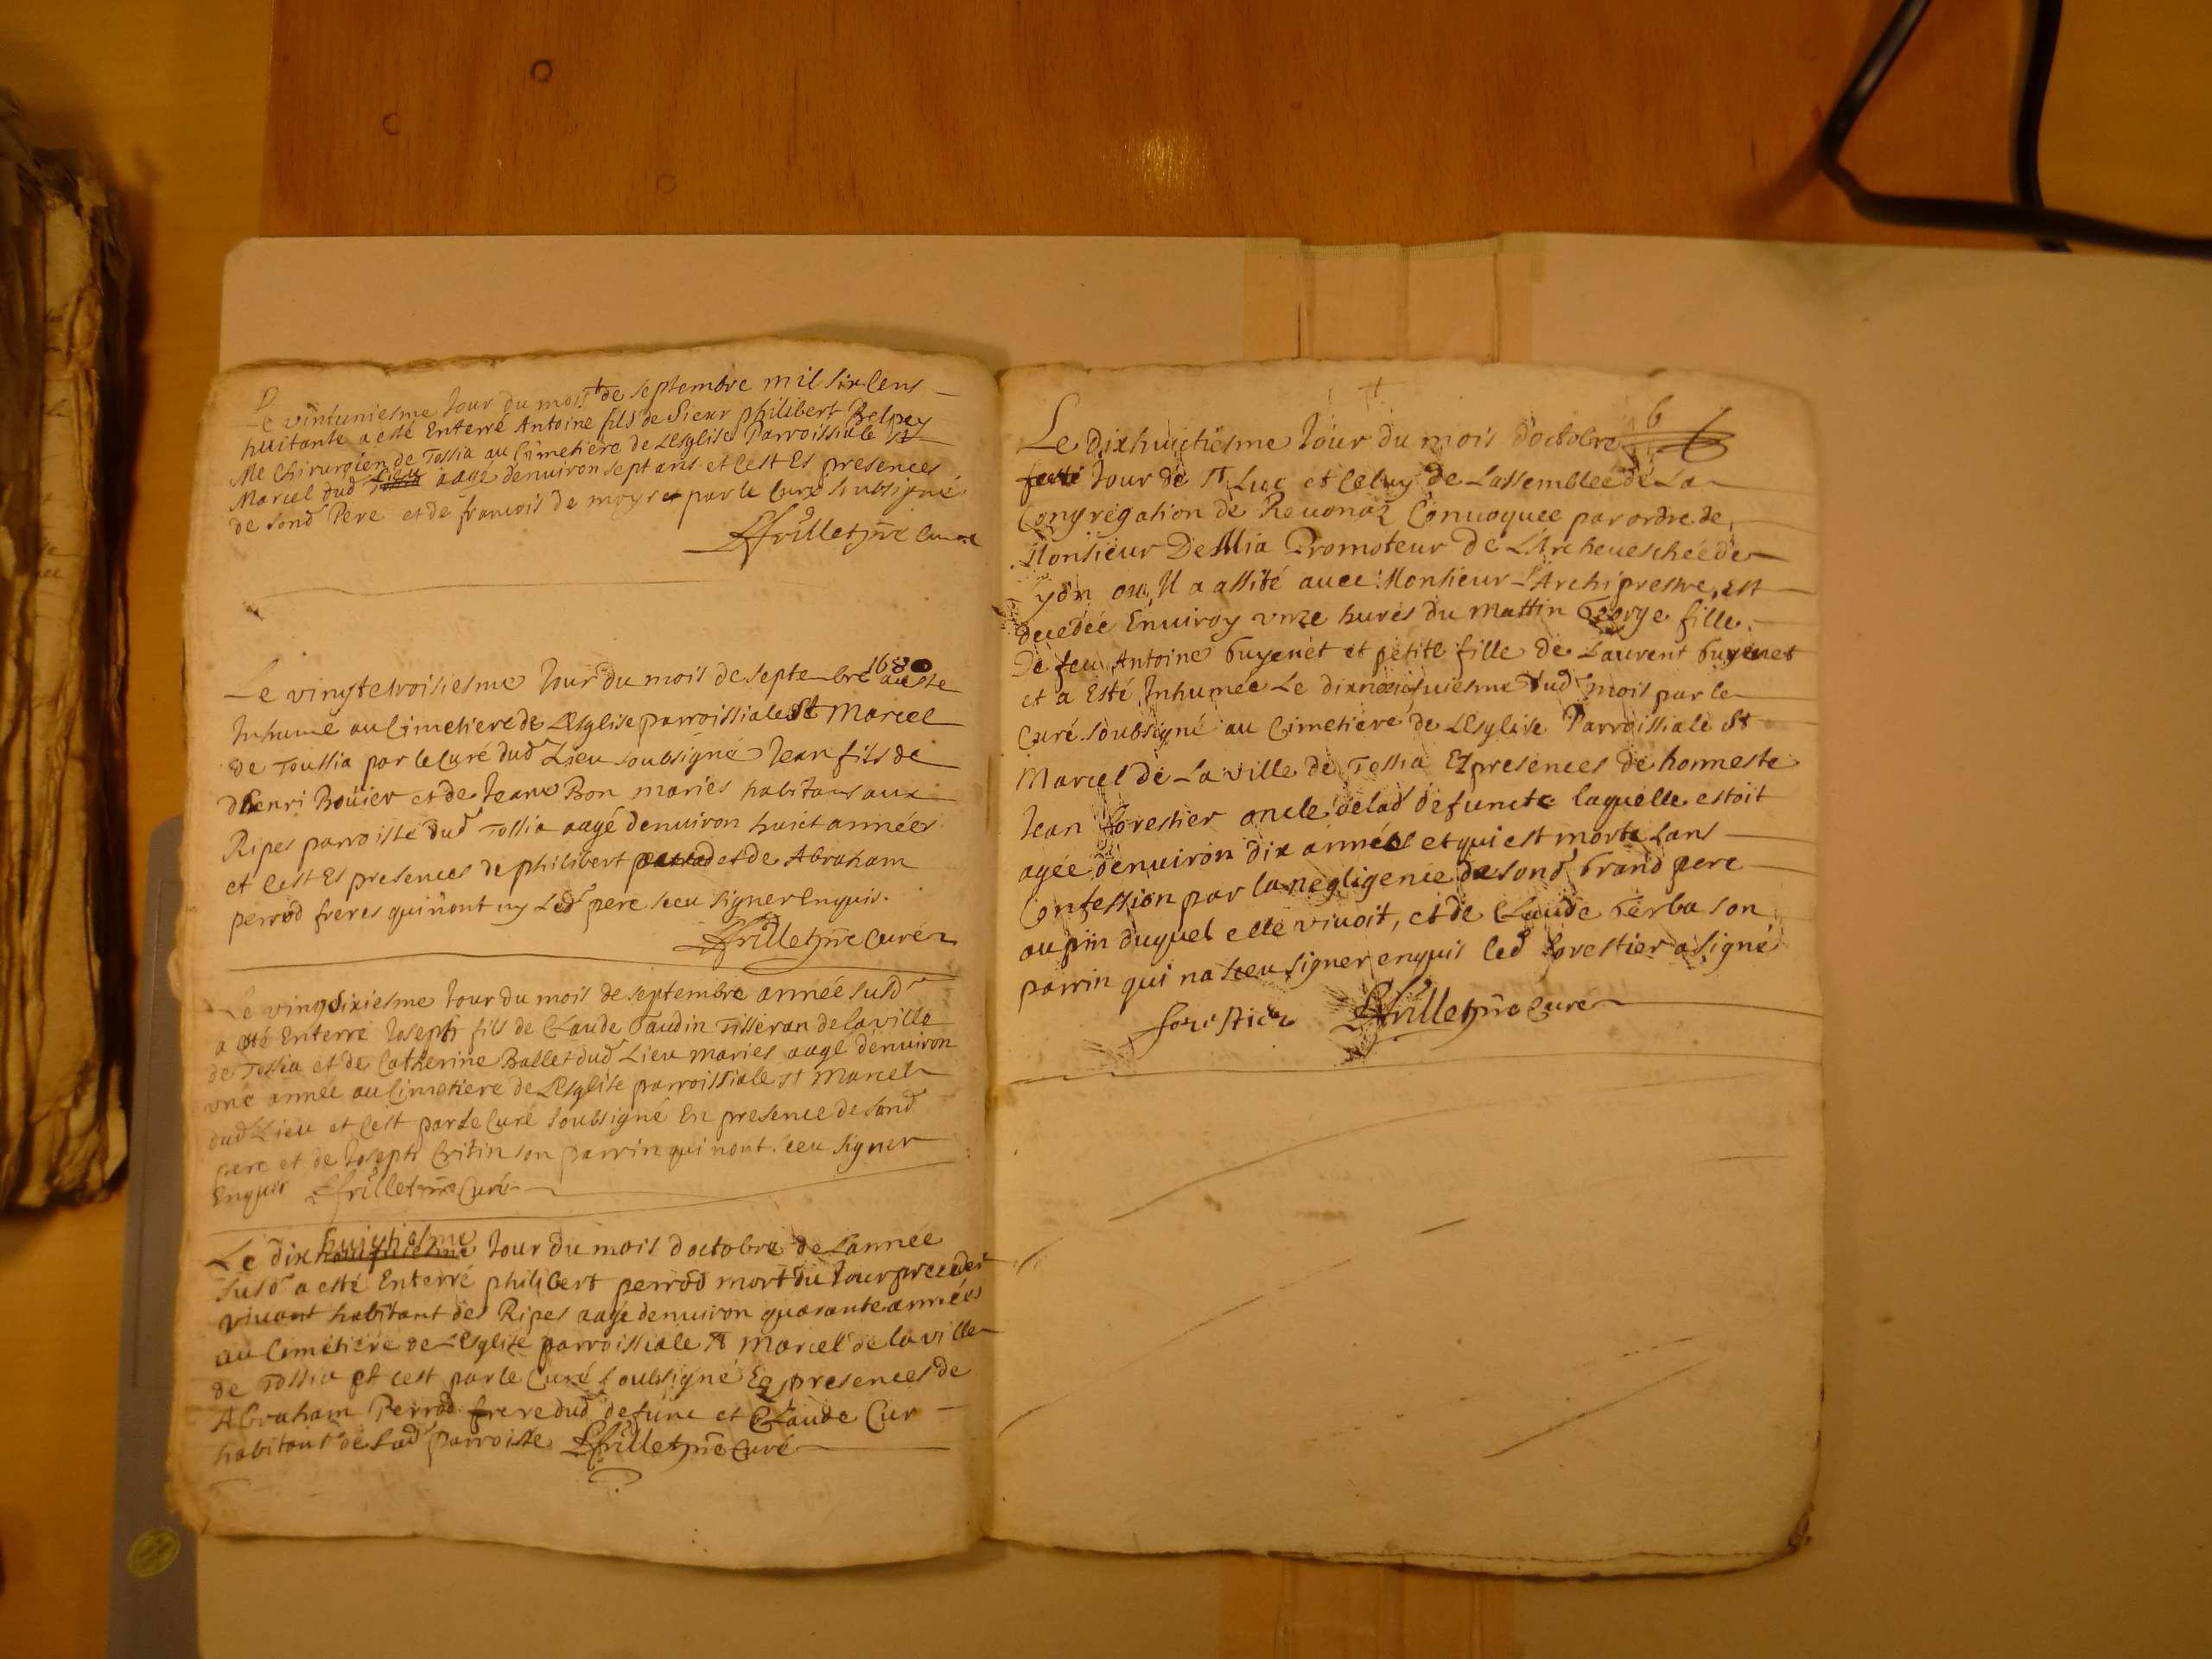 Le vintuniesme Jour du mois de septembre mil six Cens
huitante a esté Enterré Antoine fils de Sieur philibert Belpey
Me Chirurgien de Tossia au Cimetiere de LEsglise Parroissiale St
Marcel dud Lieu aagé denuiron sept ans et cest Es presences
de sond Pere et de francois de moyret par le Curé Soubsigné
Curé
1680
Le vingtetroisiesme Jour du mois de septembre a este
Inhumé au Cimetiere de LEsglise parroissiale St Marcel
de Toussia par le Curé dud Lieu soubsigné Jean fils de
dhenri Bouier et de Jeanne Bon mariés habitans aux
Ripes parroisse dud Tossia aagé denuiron huict années
et cest Es presences de philibert perrod et de Abraham
perrod freres qui nont ny Led pere sceu signer Enquis.
Frillet pre Curé
Le vingsixiesme Jour du mois de septembre année susd
a esté Enterré Joseph fils de Claude Gaudin Tisseran de la ville
de Tossia et de Catherine Ballet dud Lieu mariés aagé denuiron
une année au Cimetiere de LEsglise parroissiale St Marcel
dud Lieu et Cest par Le Curé soubsigné En presence de sond
pere et de Joseph Critin son parrin qui nont sceu signer
Enquis Frillet pre Curé
huictiesme
Le dix Jour du mois doctobre de Lannée
susd a esté Enterré philibert perrod mort du Jour precedent
vivant habitant des Ripes aagé denuiron quarante années
au Cimetiere de LEsglise parroissiale St Marcel de la ville
de Tossia et cest par le Curé soubsigné Es presences de
Abraham Perrod frere dud defunc et Claude Cur
habitans de Lad parroisse Frillet pre Curé
6
Le dixhuictiesme Jour du mois doctobre
feste Jour de St Luc et Celuy de Lassemblée de La
Congregation de Reuonas Conuoquee par ordre de
Monsieur DeMia Promoteur de LArcheueschée de
yon ou Il a assité auec Monsieur LArchiprestre, est
decedée Enuiron unze hures du mattin George fille
De feu Antoine Guyenet et petite fille de Laurent Guyenet
et a Esté Inhumée Le dixneufuiesme dud mois par le
Curé soubsigné au Cimetiere de LEsglise Parroissiale St
Marcel de La ville de Tossia Es presences de honneste
Jean forestier oncle de lad defuncte laquelle estoit
agée denuiron dix années et qui est morte sans
Confession par la negligence de sond Grand pere
au pin duquel elle viuoit, et de Claude Gerba son
parrin qui na sceu signer enquis led forestier a signé
forestier Frillet pre Curé